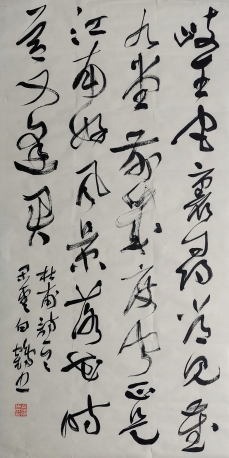 岐王宅裏尋常見崔
九堂前幾度聞正是
江南好風景落花時
節又逢君
杜甫詩
白鶴